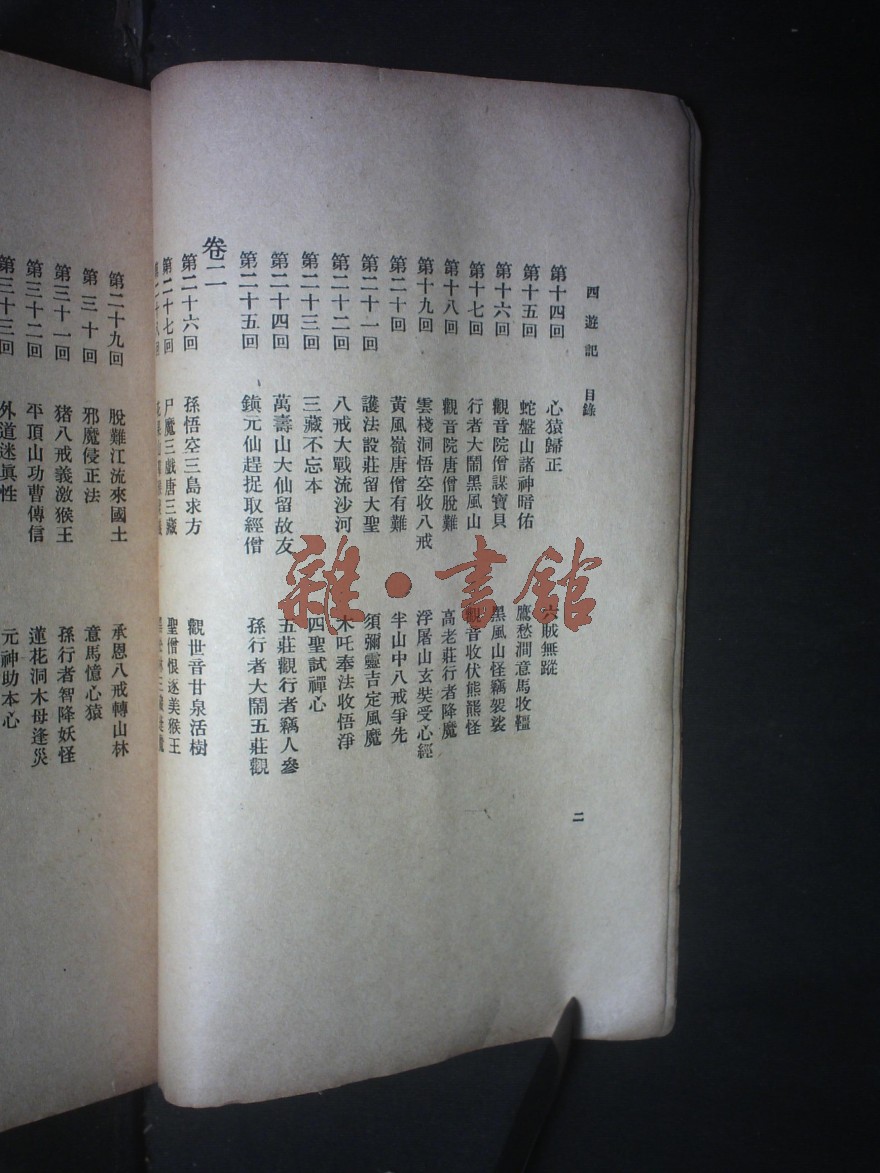 西遊記 目錄
第十四回 心猿歸正 六賊無蹤
第十五回 蛇盤山諸神暗佑 鷹愁澗意馬收韁
第十六回 觀音院僧謀寶貝 黑風山怪竊袈裟
第十七回 行者大鬧黑風山 觀音收伏熊羆怪
第十八回 觀音院唐僧脫難 高老莊行者降魔
第十九回 雲棧洞悟空收八戒 浮屠山玄奘受心經
第二十回 黃風嶺唐僧有難 半山中八戒爭先
第二十一回 護法設莊留大聖 須彌靈吉定風魔
第二十二回 八戒大戰流沙河 木吒奉法收悟淨
第二十三回 三藏不忘本 四聖試禪心
第二十四回 萬壽山大仙留故友 五莊觀行者竊人參
第二十五回 鎮元仙趕捉取經僧 孫行者大鬧五莊觀
卷二
第二十六回 孫悟空三島求方 觀世音甘泉活樹
第二十七回 尸魔三戲唐三藏 聖僧恨逐美猴王
二
第二十九回 脫難江流來國土 承恩八戒轉山林
第三十回 邪魔侵正法 意馬憶心猿
第三十一回 猪八戒義激猴王 孫行者智降妖怪
第三十二回 平頂山功曹傳信 蓮花洞木母逢災
第三十三回 外道迷眞性 元神助本心
雜·書館